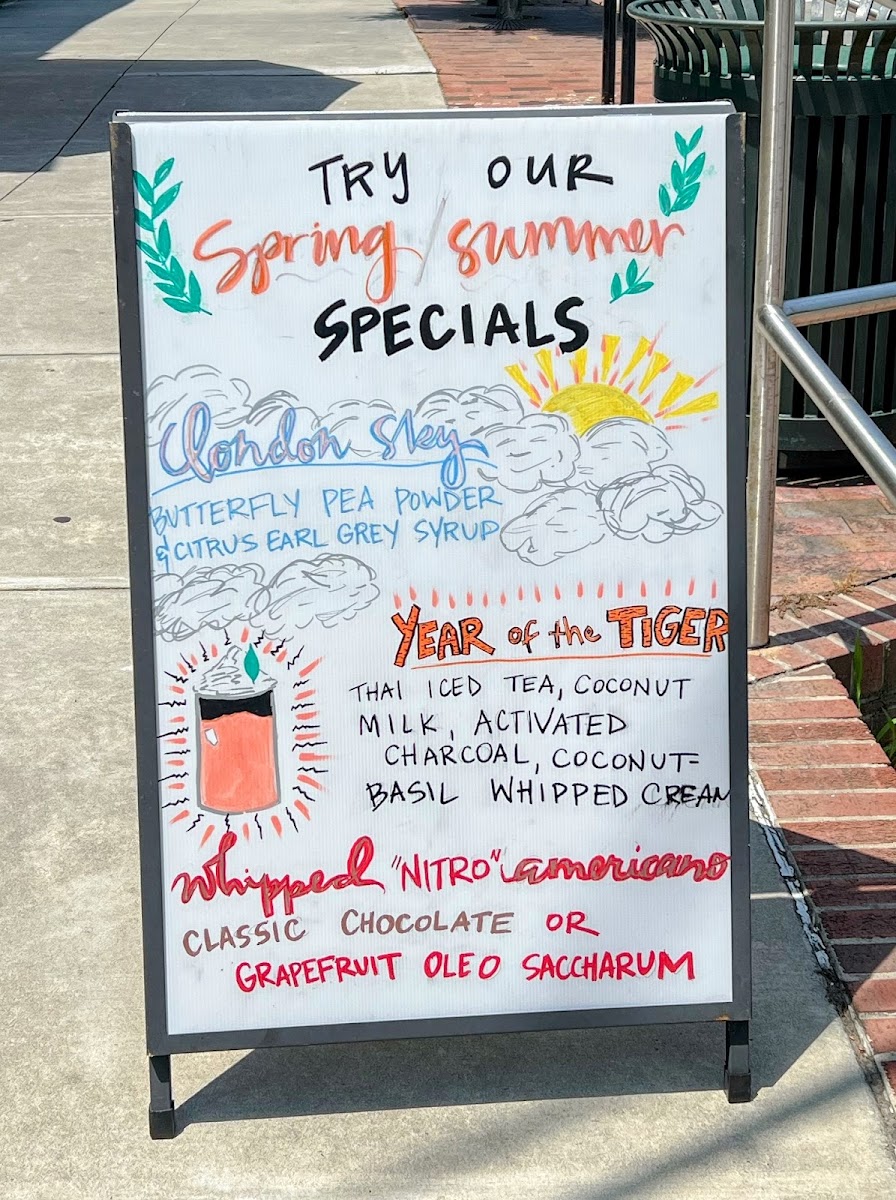 TRY OUR
Spring/summer
SPECIALS
London Sky
BUTTERFLY PEA POWDER
& CITRUS EARL GREY SYRUP
YEAR of the TIGER
THAI ICED TEA, COCONUT
MILK, ACTIVATED
CHARCOAL, COCONUT-
BASIL WHIPPED CREAM
whipped "NITRO" americano
CLASSIC CHOCOLATE OR
GRAPEFRUIT OLEO SACCHARUM